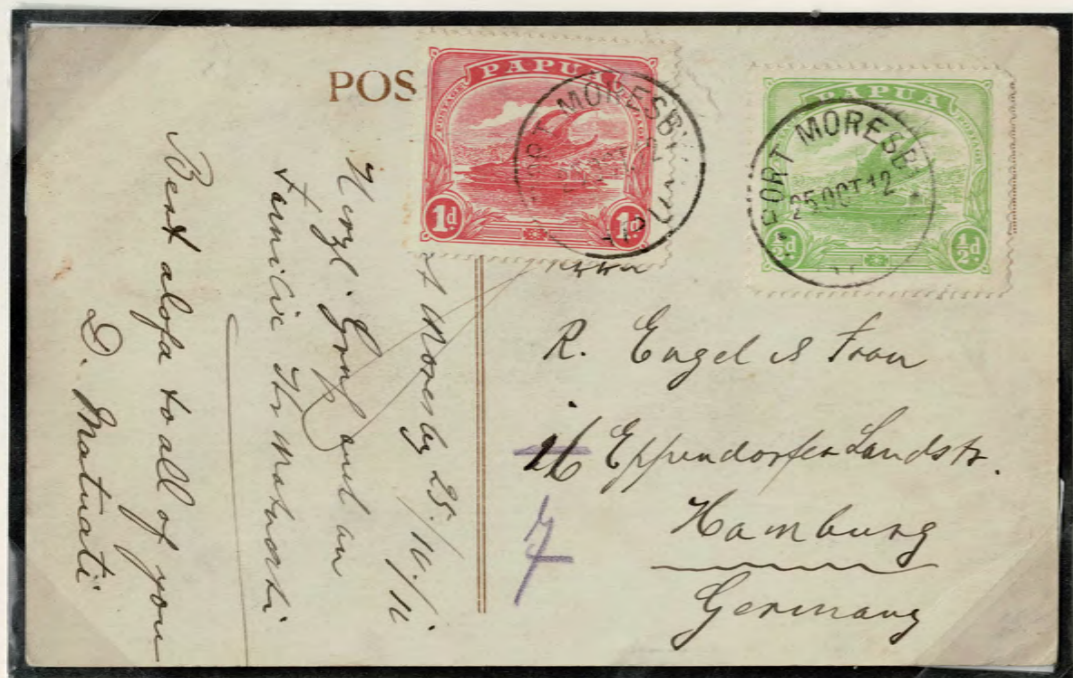 POS
PAPUA
POSTAGE
POSTAGE
1d
1d
PORT MORESBY
PAPUA
POSTAGE
½d
½d
PORT MORESBY
25 OCT 12
t Moresby 25/10/12
Herzl. Gruß und an
Familie
Best alofa to all of you
D. Matuati
R. Engel & Frau
Eppendorfer Landstr.
Hamburg
Germany
7